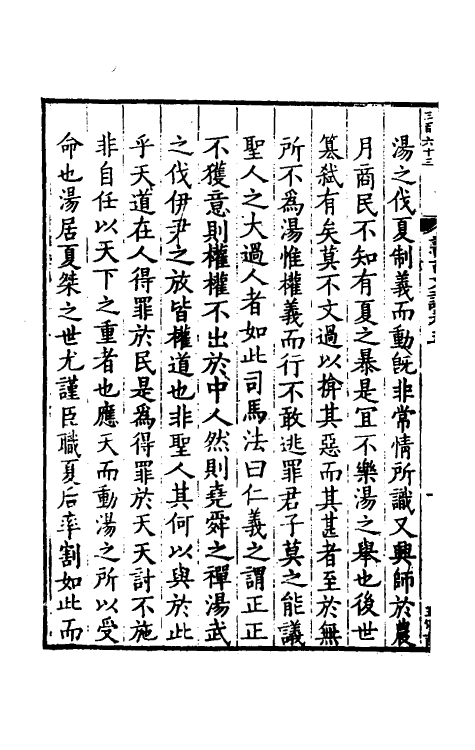 湯之伐夏制義而動既非常情所識又興師於農
月商民不知有夏之暴是冝不樂湯之舉也後世
簒弑有矣莫不文過以揜其惡而其甚者至於無
所不為湯惟權義而行不敢逃罪君子莫之能議
聖人之大過人者如此司馬法曰仁義之謂正正
不獲意則權權不出於中人然則堯舜之禪湯武
之伐伊尹之放皆權道也非聖人其何以與於此
乎天道在人得罪於民是為得罪於天天討不施
非自任以天下之重者也應天而動湯之所以受
命也湯居夏桀之世尤謹臣職夏后率割如此而
三百六十三